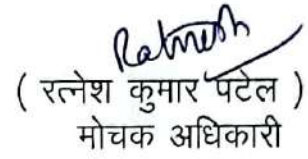 Ratnesh
( रत्नेश कुमार पटेल )
मोचक अधिकारी